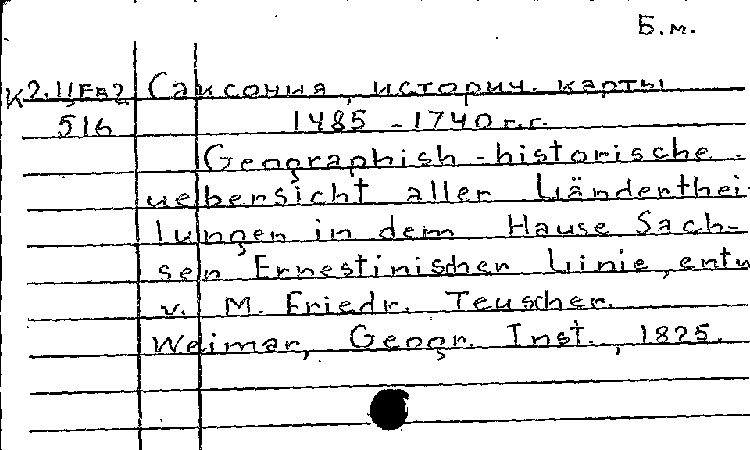 Б.м.
К 2.11Fв2 Саксония, историч. карты
516 1485 - 1740 г.г.
Geographish-historische
uebersicht aller Länderthei-
lungen in dem Hause Sach-
sen Ernestinischer Linie, entw
v. M. Friedr. Teuscher.
Weimar, Geogr. Inst., 1825.